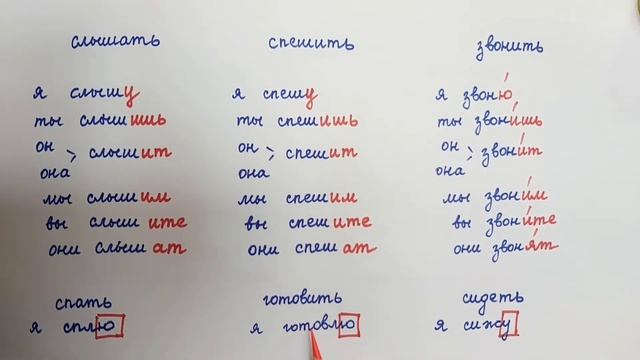 слышать спешить звонить
я слышу я спешу я звоню́
ты слышишь ты спешишь ты звони́шь
он он он
слышит спешит звони́т
она она она
мы слышим мы спешим мы звони́м
вы слышите вы спешите вы звони́те
они слышат они спешат они звоня́т
спать готовить сидеть
я сплю я готовлю я сижу